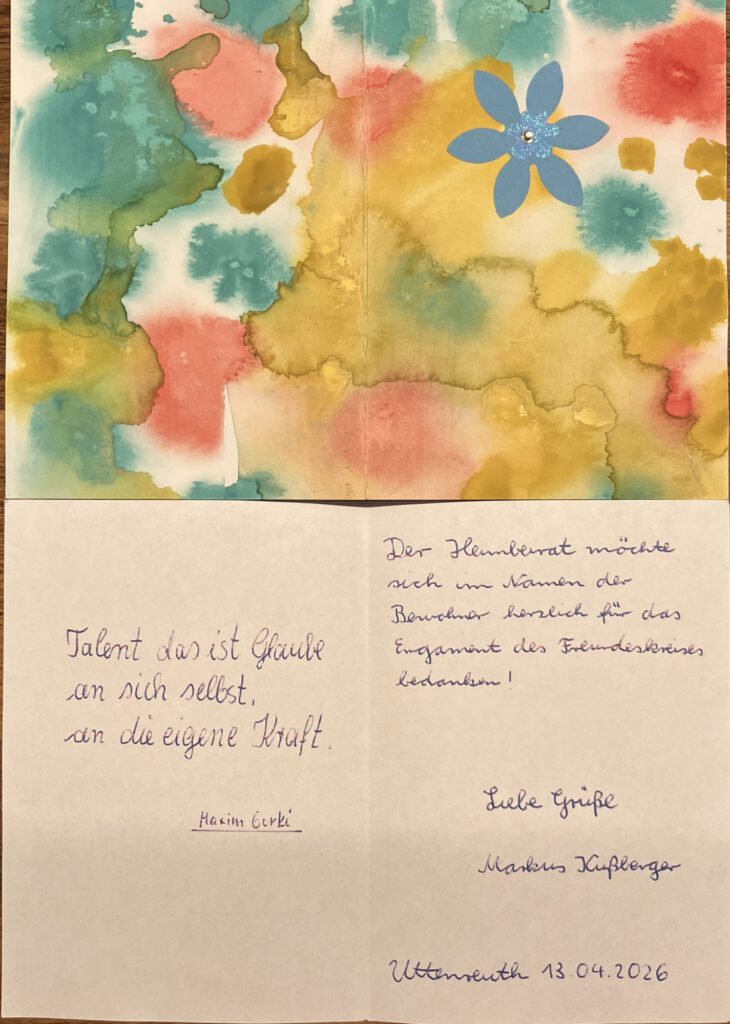 Talent das ist Glaube
an sich selbst,
an die eigene Kraft.
Maxim Gorki
Der Heimbeirat möchte
sich im Namen der
Bewohner herzlich für das
Engament des Freundeskreises
bedanken!
Liebe Grüße
Markus Kußberger
Uttenreuth 13.04.2026